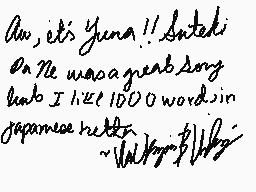 Aw, it's Yuna!! Suteki
Da Ne was a great song
but I like 1000 words in
japanese better
~